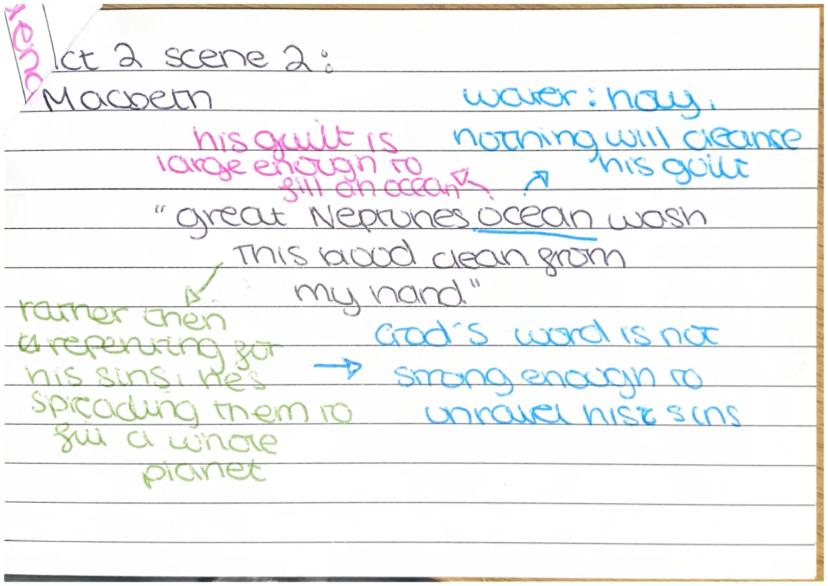 Act 2 scene 2:
Macbeth
water: holy,
nothing will cleanse
his guilt
his guilt is
large enough to
fill an ocean
"great Neptunes ocean wash
This blood clean from
my hand"
rather then
repenting for
his sins, he's
spreading them to
fill a whole
planet
God's word is not
strong enough to
unravel his sins